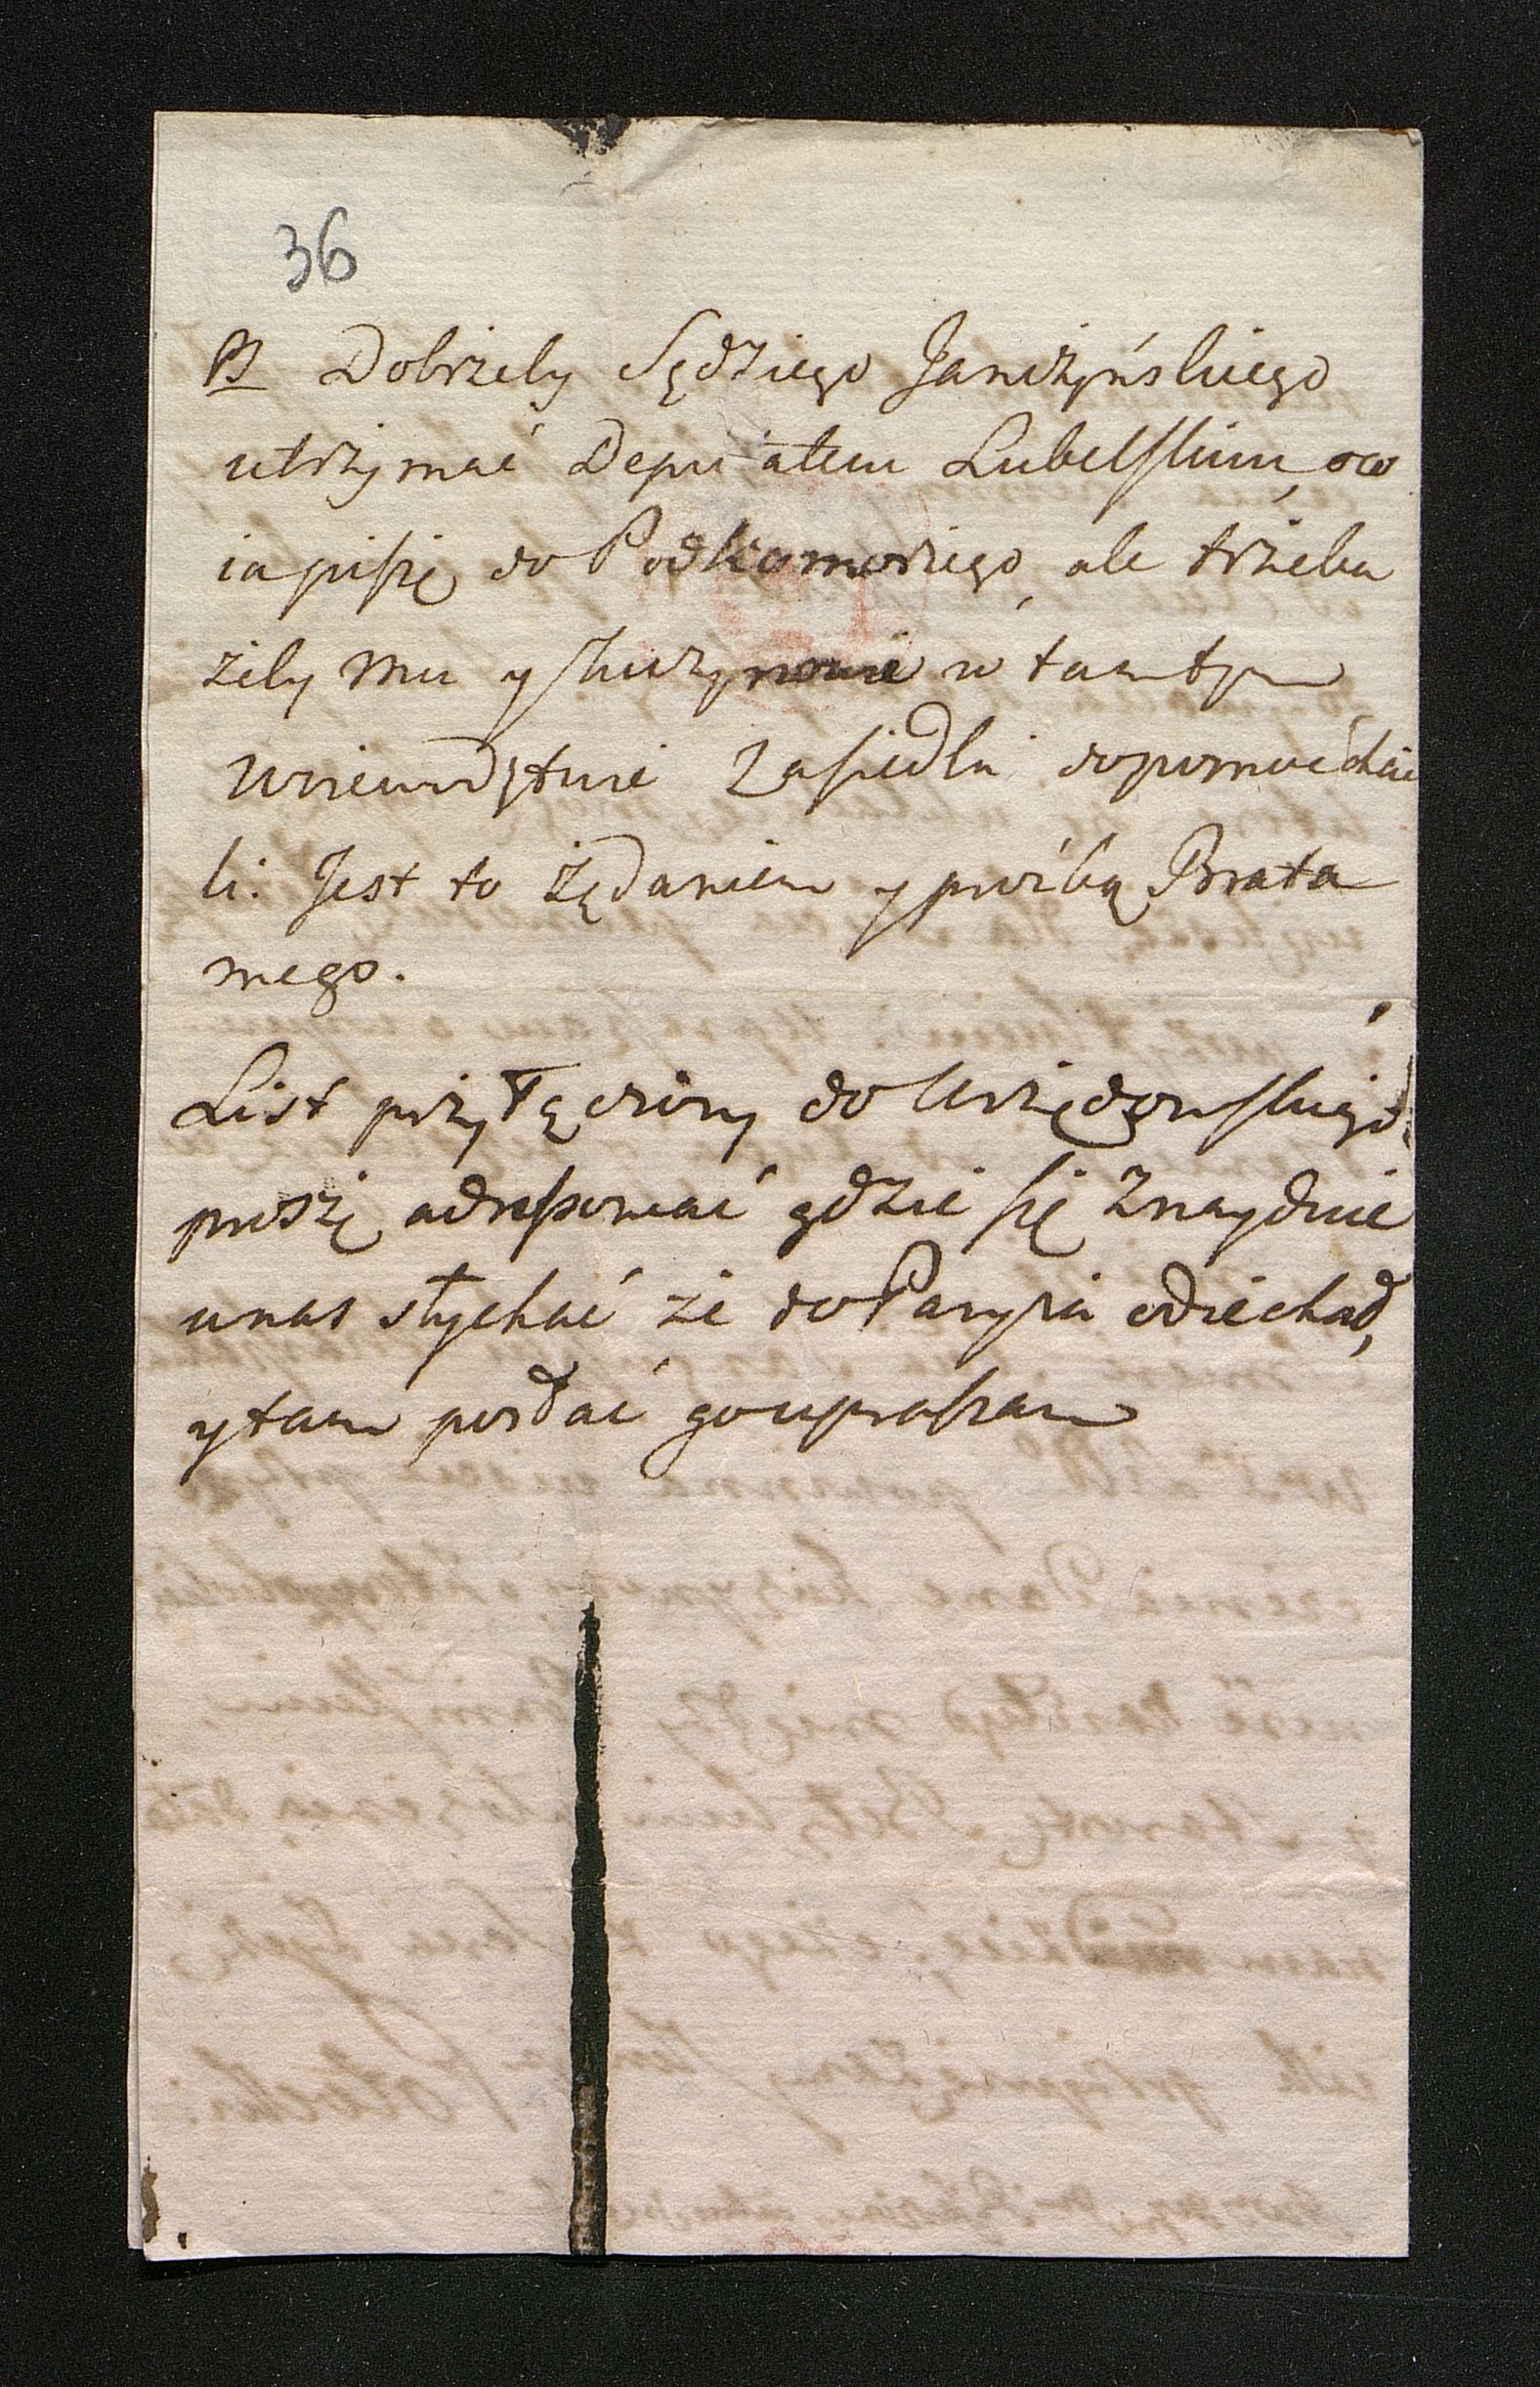 36
PS Dobrzeby Sędziego Janiszyńskiego
utrzymać Deputatem Lubelskim, oco
ia piszę do Podkomorzego, ale trzeba
żeby mu y w tamtym
Woiewodztwie zasiedli dopomoc chcie
li. Jest to żądaniem y prośbą Brata
mego.
List przyłączony do
proszę adressować gdzie się znayduie
unas słychać że do Paryża odiechał,
ytam posłać go upraszam